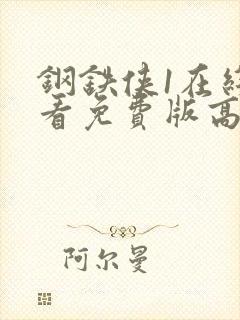 鋼鉄俠1在綫
看免費版高
阿尔曼